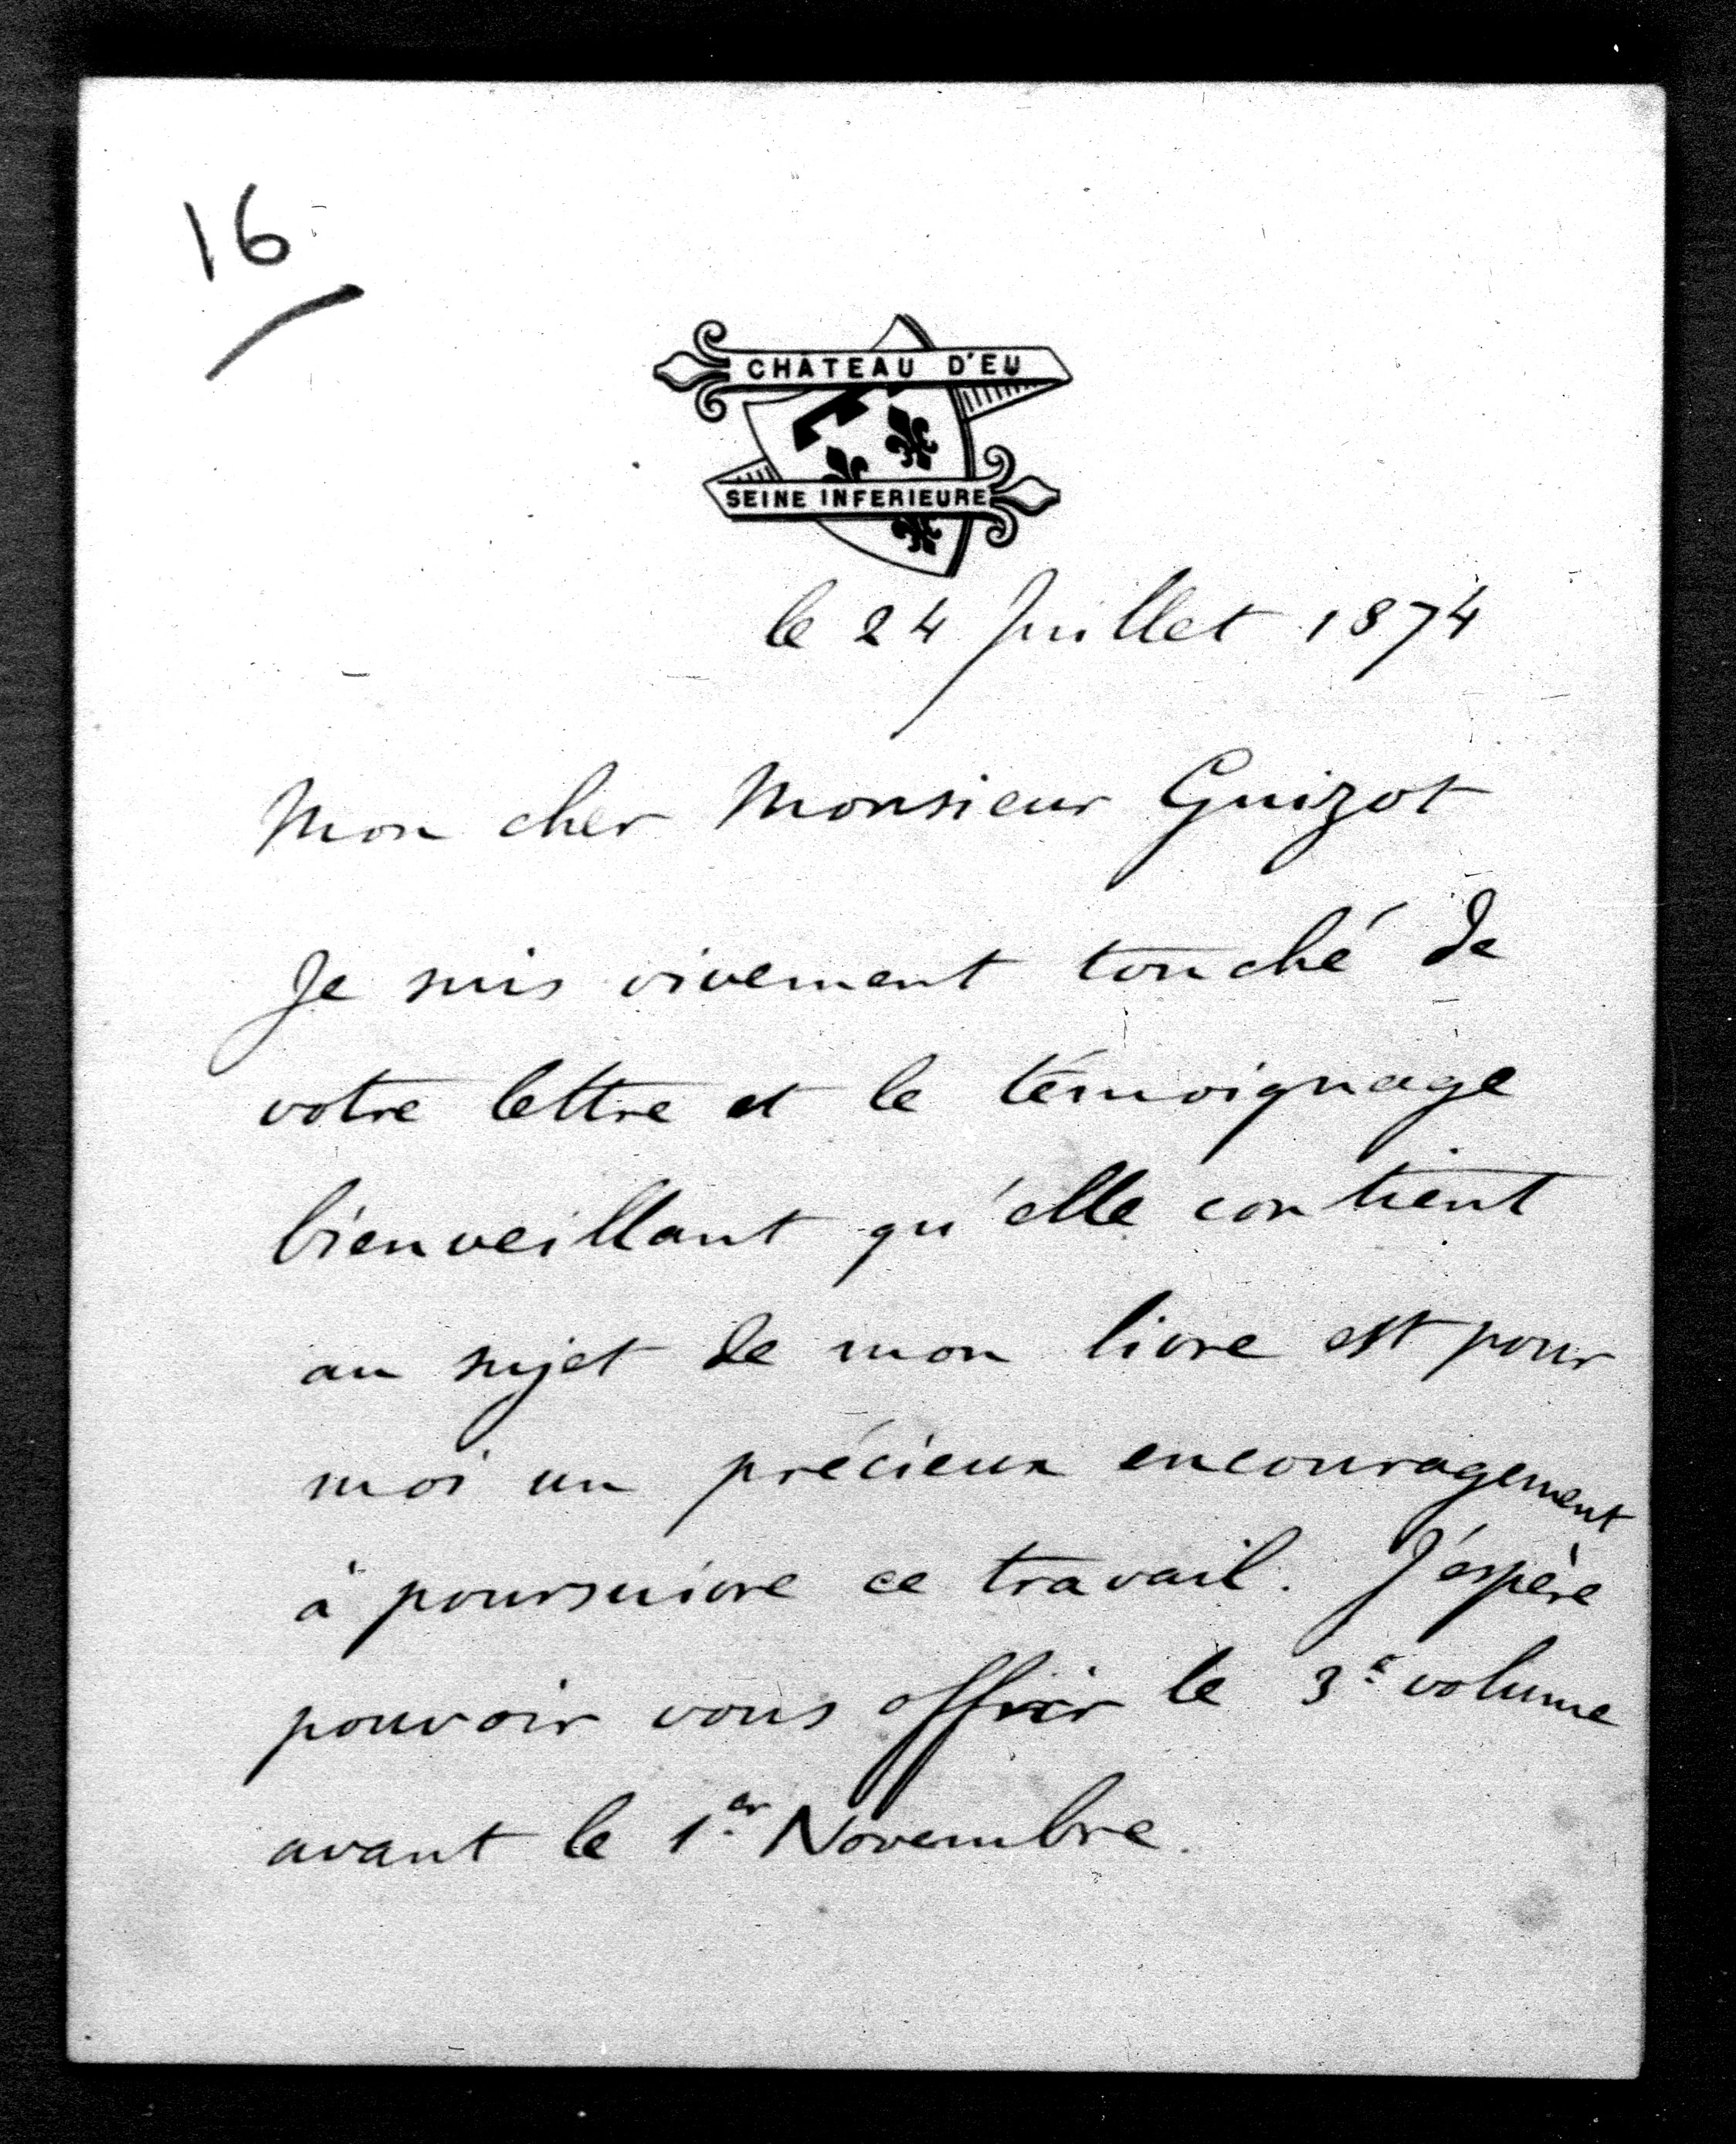 16
CHÂTEAU D'EU
SEINE INFERIEURE
le 24 Juillet 1874
Mon cher Monsieur Guizot
Je suis vivement touché de
votre lettre et le témoignage
bienveillant qu'elle contient
au sujet de mon livre est pour
moi un précieux encouragement
à poursuivre ce travail. J'espère
pouvoir vous offrir le 3e volume
avant le 1er Novembre.